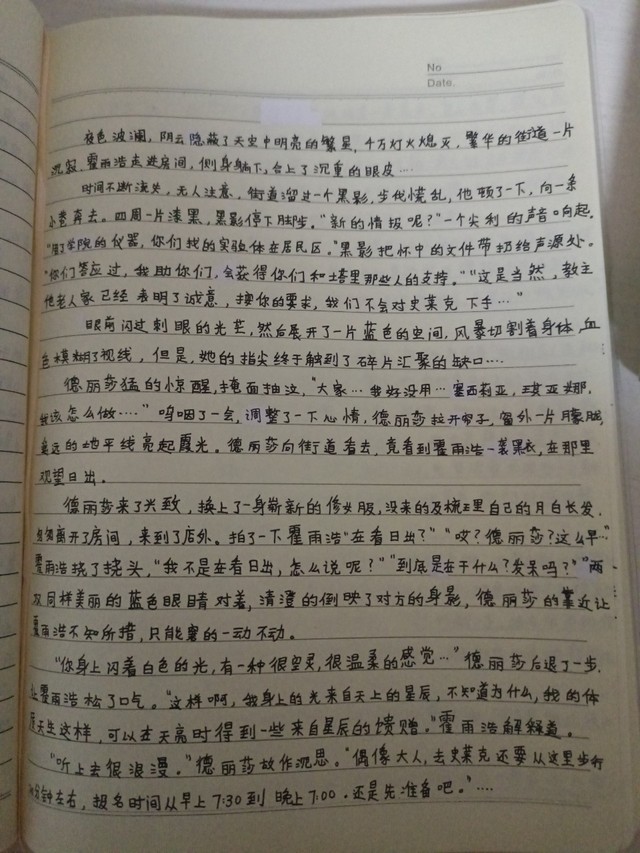 No
Date.
夜色波澜，阴云隐蔽了天空中明亮的繁星，千万灯火熄灭，繁华的街道一片
沉寂，霍雨浩走进房间，侧身躺下，合上了沉重的眼皮….
时间不断流失，无人注意，街道溜过一个黑影，步伐慌乱，他顿了下，向一条
小巷奔去。四周一片漆黑，黑影停下脚步。“新的情报呢？”一个尖利的声音响起。
“用了学院的仪器，你们找的实验体在居民区。”黑影把怀中的文件带扔给声源处。
“你们答应过，我助你们，会获得你们和塔里那些人的支持。”“这是当然，教主
他老人家已经表明了诚意，按你的要求，我们不会对史莱克下手…”
眼前闪过刺眼的光芒，然后展开了一片蓝色的空间，风暴切割着身体，血
色模糊了视线，但是，她的指尖终于触到了碎片汇聚的缺口….
德丽莎猛的惊醒，掩面抽泣，“大家…我好没用…塞西莉亚，琪亚娜，
我该怎么做….”呜咽了一会，调整了下心情，德丽莎拉开帘子，窗外一片朦胧，
遥远的地平线亮起霞光。德丽莎向街道看去，竟看到霍雨浩一袭黑衣，在那里
观望日出。
德丽莎来了兴致，换上了一身崭新的修女服，没来的及梳理自己的月白长发，
匆匆离开了房间，来到了店外。拍了一下霍雨浩“在看日出？”“哎？德丽莎？这么早…”
霍雨浩挠了挠头，“我不是在看日出，怎么说呢？”“到底是在干什么？发呆吗？”两
双同样美丽的蓝色眼睛对着，清澄的倒映了对方的身影，德丽莎的靠近让
霍雨浩不知所措，只能的一动不动。
“你身上闪着白色的光，有一种很空灵，很温柔的感觉…”德丽莎后退了一步，
让霍雨浩松了口气。“这样啊，我身上的光来自天上的星辰，不知道为什么，我的体
质天生这样，可以在天亮时得到一些来自星辰的馈赠。”霍雨浩解释道。
“听上去很浪漫。”德丽莎故作沉思。“偶像大人，去史莱克还要从这里步行
分钟左右，报名时间从早上7:30到晚上7:00.还是先准备吧。”….